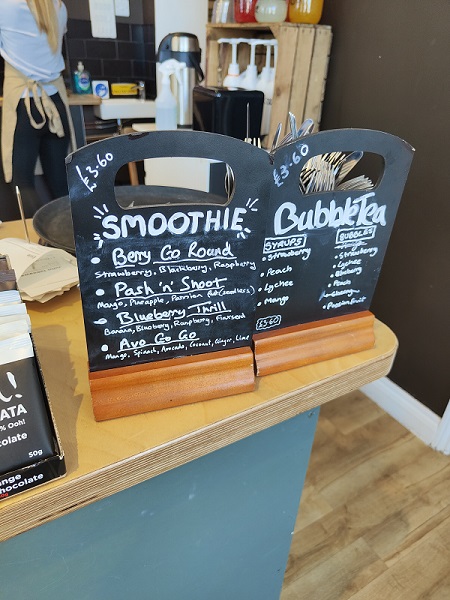 £3.60
SMOOTHIE
Berry Go Round
Strawberry, Blackberry, Raspberry
Pash 'n' Shoot
Mango, Pineapple, Passion Fruit (seedless)
Blueberry Thrill
Banana, Blueberry, Raspberry, Flaxseed
Avo Go Go
Mango, Spinach, Avocado, Coconut, Ginger, Lime
£3.60
Bubble Tea
SYRUPS
Strawberry
Peach
Lychee
Mango
£3.60
BUBBLES
Strawberry
Lychee
Blueberry
Peach
Passionfruit
ATA
% Ooh!
colate
50g
nge
hocolate